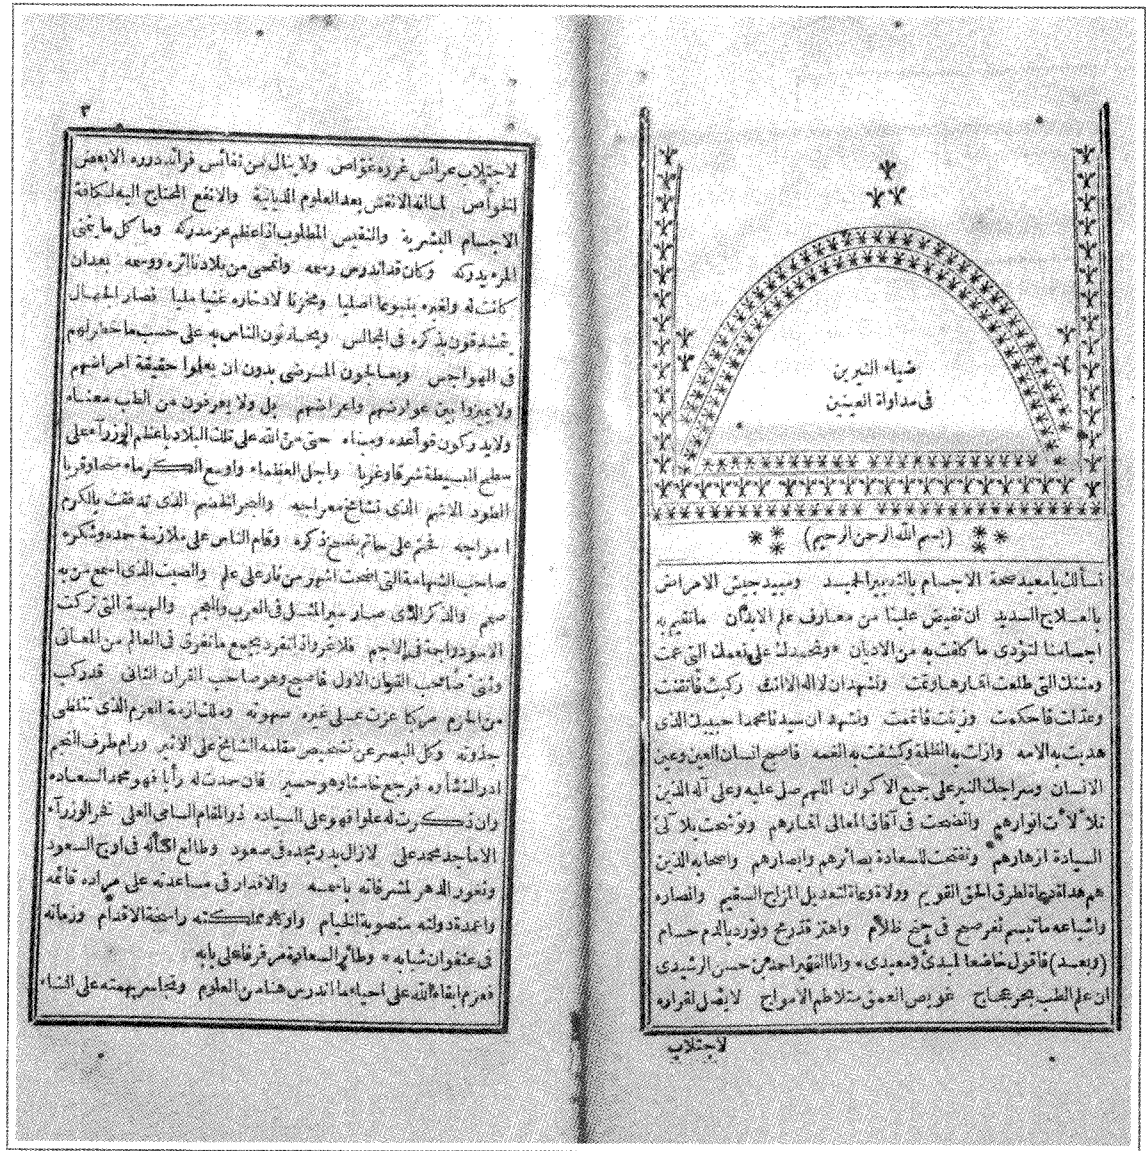 ضياء النيرين
فى مداواة العينين
(بسم الله الرحمن الرحيم)
نسألك يا معيد صحة الاجسام بالتدبير الحميد ومبيد جيش الامراض
بالعلاج السديد ان تفيض علينا من معارف علم الابدان ما تقيم به
اجسامنا لتؤدى ما كلفت به من الاديان * ونحمدك على نعمك التى عمت
ومننك التى طلعت اقمارها وتمت ونشهد ان لا اله الا انت ركبت فاتقنت
وعدلت فاحكمت وزينت فاتممت ونشهد ان سيدنا محمدا حبيبك الذى
هديت به الامه وازلت به الظلمة وكشفت به الغمه فاصبح انسان العين وعين
الانسان وسراجك النير على جميع الاكوان اللهم صل عليه وعلى آله الذين
تلألأت انوارهم واتضحت فى آفاق المعالى اقمارهم وتوشحت بلآلئ
السيادة ازهارهم وتفتحت للسعادة بصائرهم وابصارهم واصحابه الذين
هم هداة دعاة لطرق الحق القويم وولاة وعاة لتعديل المزاج السقيم وانصاره
واشياعه ما تبسم ثغر صبح فى جنح ظلام واهتز قد رمح وتورد بالدم حسام
(وبعد) فاقول خاضعا لمبدئى ومعيدى * وانا الفقير احمد بن حسن الرشيدى
ان علم الطب بحر عجاج غويص العمق متلاطم الامواج لا يصل لقراره
لاجتلاب
٣
لاجتلاب عرائس غرره غواص ولا ينال من نفائس فرائد درره الا بعض
الخواص لما انه الانفس بعد العلوم الديانية والانفع المحتاج اليه لكافة
الاجسام البشرية والنفيس المطلوب اذا عظم عز مدركه وما كل ما يتمنى
المرء يدركه وكان قد اندرس رسمه وامحى من بلادنا اثره ووسمه بعد ان
كانت له ولغيره ينبوعا اصليا ومخزنا لادخاره غنيا مليا فصار الجهال
يتشدقون بذكره فى المجالس ويتحادثون الناس به على حسب ما خطر لهم
فى الهواجس ويعالجون المرضى بدون ان يعلموا حقيقة امراضهم
ولا يميزوا بين عوارضهم واعراضهم بل ولا يعرفون من الطب معناه
ولا يدركون قواعده ومبناه حتى من الله على تلك البلاد باعظم الوزرآء على
سطح البسيطة شرقا وغربا واجل العظماء واوسع الكرماء منحا وقربا
الطود الاشم الذى تشامخ معراجه والبحر الخضم الذى تدفقت بالكرم
امواجه فختم على حاتم بنسخ ذكره وقام الناس على ملازمة حمده وشكره
صاحب الشهامة التى اضحت اشهر من نار على علم والصيت الذى اسمع من به
صمم والذكر الذى صار سير المثل فى العرب والعجم والهيبة التى تركت
الاسود واجمة فى الاجم فلا غرو اذا تفرد بجميع ما تفرق فى العالم من المعانى
صاحب القران الاول فاصبح وهو صاحب القران الثانى قد ركب
من الحزم مركبا عزت على غيره صهوته وملك ازمة العزم الذى تتلظى
جذوته وكل البصر عن تشخيص مقامه الشامخ على الاثير ورام طرف النجم
ادراك شأوه فرجع خاسئا وهو حسير فان حمدت له رأيا فهو محمد السعاده
وان ذكرت له علوا فهو على السياده ذو المقام السامى العلى فخر الوزرآء
الاماجد محمد على لازال بدر مجده فى صعود وطالع اقباله فى اوج السعود
وثغور الدهر لمشرقاته باسمه والاقدار فى مساعدته على مراده قائمه
واعمدة دولته منصوبة الخيام مملكته راسخة الاقدام وزمانه
فى عنفوان شبابه * وطائر السعادة مرفرفا على بابه
فعزم ابقاه الله على احياء ما اندرس هنا من العلوم وتجاسر بهمته على انشاء